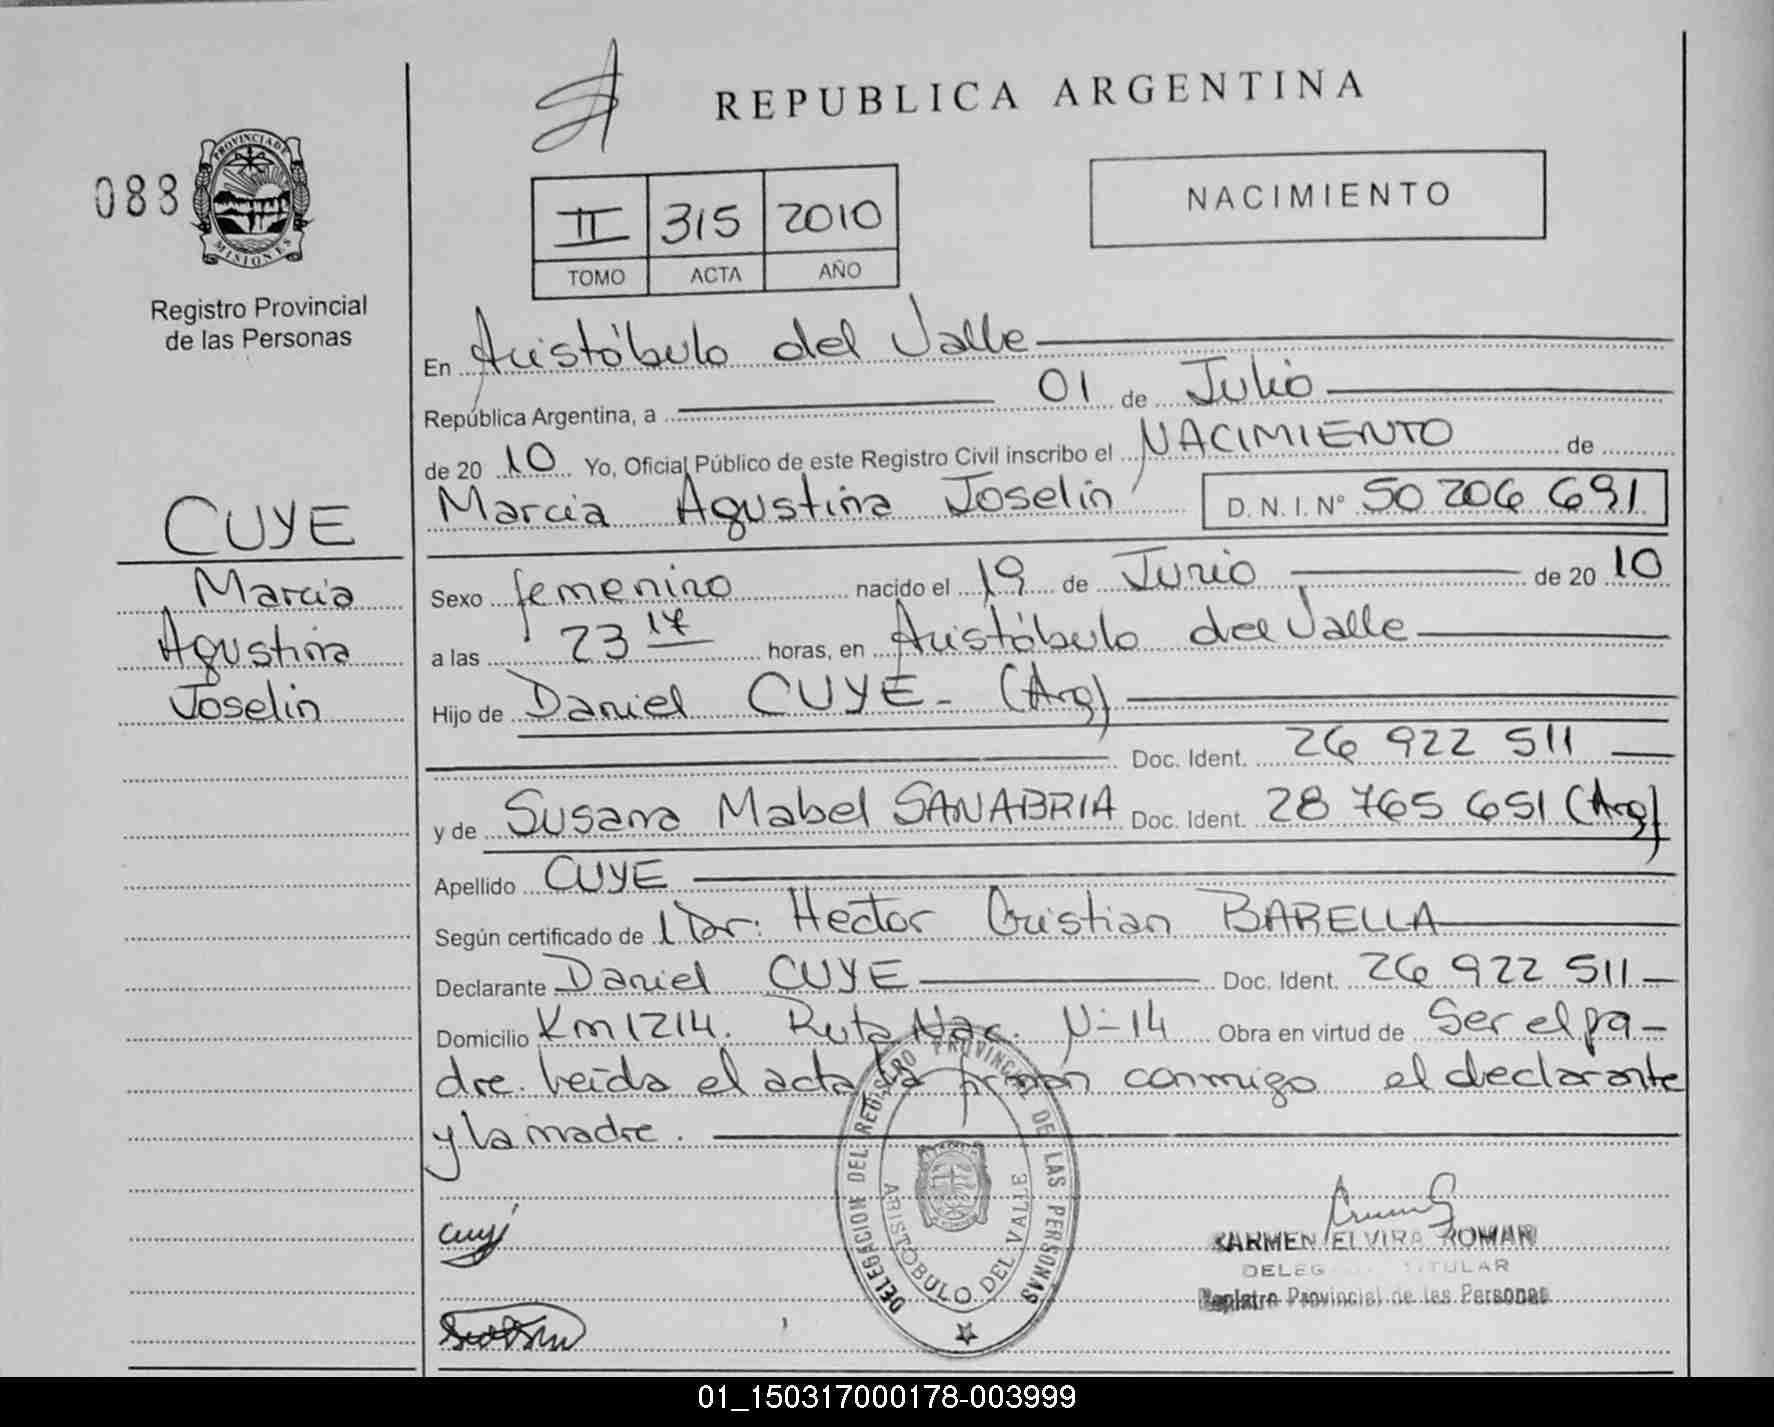 REPUBLICA ARGENTINA
088
PROVINCIA DE
MISIONES
Registro Provincial
de las Personas
II 315 2010
TOMO ACTA AÑO
NACIMIENTO
En Aristóbulo del Valle
República Argentina, a 01 de Julio
de 20 10 Yo, Oficial Público de este Registro Civil inscribo el NACIMIENTO de
Marcia Agustina Joselin D. N. I. Nº 50 206 691
CUYE
Marcia
Agustina
Joselin
Sexo femenino nacido el 19 de Junio de 20 10
a las 23 17 horas, en Aristóbulo del Valle
Hijo de Daniel CUYE - (Arg)
Doc. Ident. 26 922 511
y de Susana Mabel SANABRIA Doc. Ident. 28 765 651 (Arg)
Apellido CUYE
Según certificado de Dr: Hector Cristian BARELLA
Declarante Daniel CUYE Doc. Ident. 26 922 511
Domicilio Km 1214. Ruta Nac. Nº 14 Obra en virtud de Ser el pa-
dre. Leída el acta la firman conmigo el declarante
y la madre.
DELEGACION DEL REGISTRO PROVINCIAL DE LAS PERSONAS
ARISTÓBULO DEL VALLE
CARMEN ELVIRA ROMAN
TITULAR
Registro Provincial de las Personas
01_150317000178-003999